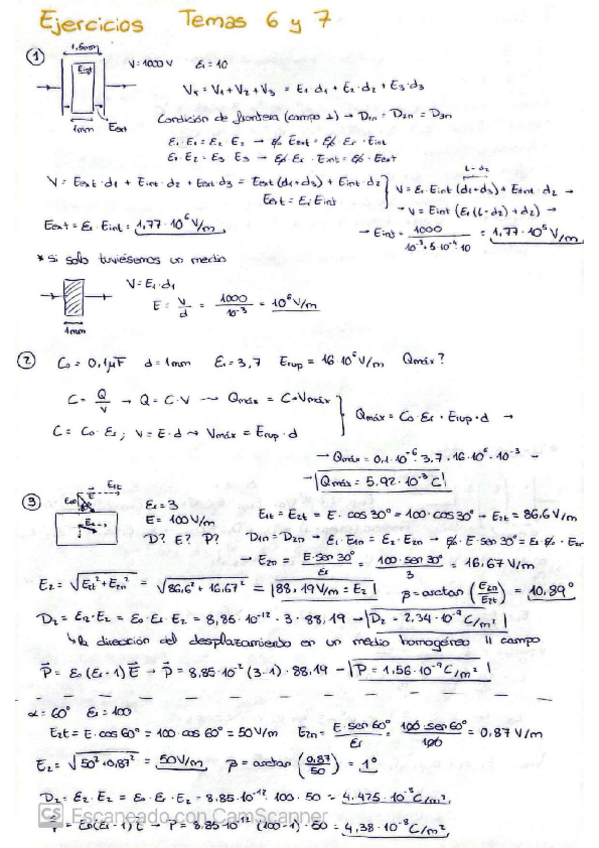 Ejercicios Temas 6 y 7
①
1,5mm
Eint
1mm
Eext
V=1000V εr=10
V_T = V1+V2+V3 = E1·d1 + E2·d2 + E3·d3
Condición de frontera (campo ⊥) → D1n = D2n = D3n
ε1·E1 = ε2·E2 → ε0·Eext = ε0·εr·Eint
ε1·E2 = E3·E3 → ε0·εr·Eint = ε0·Eext
V = Eext·d1 + Eint·d2 + Eext·d3 = Eext(d1+d3) + Eint·d2
Eext = εr·Eint
L-d2
V = εr·Eint(d1+d3) + Eint·d2 →
→ V = Eint(εr(L-d2)+d2) →
Eext = εr·Eint = 1,77·10⁶ V/m
→ Eint = 1000 / 10⁻³+5·10⁻⁴·10 = 1,77·10⁵ V/m
* si solo tuviésemos un medio
1mm
V = E1·d1
E = V/d = 1000/10⁻³ = 10⁶ V/m
② C0 = 0,1μF d = 1mm εr = 3,7 Erup = 16·10⁶ V/m Qmáx?
C = Q/V → Q = C·V → Qmáx = C·Vmáx
Qmáx = C0·εr·Erup·d →
C = C0·εr ; V = E·d → Vmáx = Erup·d
→ Qmáx = 0,1·10⁻⁶·3,7·16·10⁶·10⁻³ →
→ Qmáx = 5,92·10⁻³ C
③
E1t
εr = 3
E = 100 V/m
D? E? P?
E1t = E2t = E·cos30° = 100·cos30° → E2t = 86,6 V/m
D1n = D2n → ε1·E1n = ε2·E2n → ε0·E·sen30° = ε0·εr·E2n
→ E2n = E·sen30°/εr = 100·sen30°/3 = 16,67 V/m
E2 = √(E2t²+E2n²) = √(86,6²+16,67²) = 88,19 V/m = E2 β = arctan(E2n/E2t) = 10,89°
D2 = ε2·E2 = ε0·εr·E2 = 8,85·10⁻¹²·3·88,19 → D2 = 2,34·10⁻⁹ C/m²
↳ la dirección del desplazamiento en un medio homogéneo || campo
P = ε0(εr-1)E → P = 8,85·10⁻¹²(3-1)·88,19 → P = 1,56·10⁻⁹ C/m²
α = 60° εr = 100
E2t = E·cos60° = 100·cos60° = 50 V/m E2n = E·sen60°/εr = 100·sen60°/100 = 0,87 V/m
E2 = √(50²+0,87²) = 50 V/m β = arctan(0,87/50) = 1°
D2 = ε2·E2 = ε0·εr·E2 = 8,85·10⁻¹²·100·50 = 4,425·10⁻⁸ C/m²
CS Escaneado con CamScanner
P = ε0(εr-1)E → P = 8,85·10⁻¹²(100-1)·50 = 4,38·10⁻⁸ C/m²